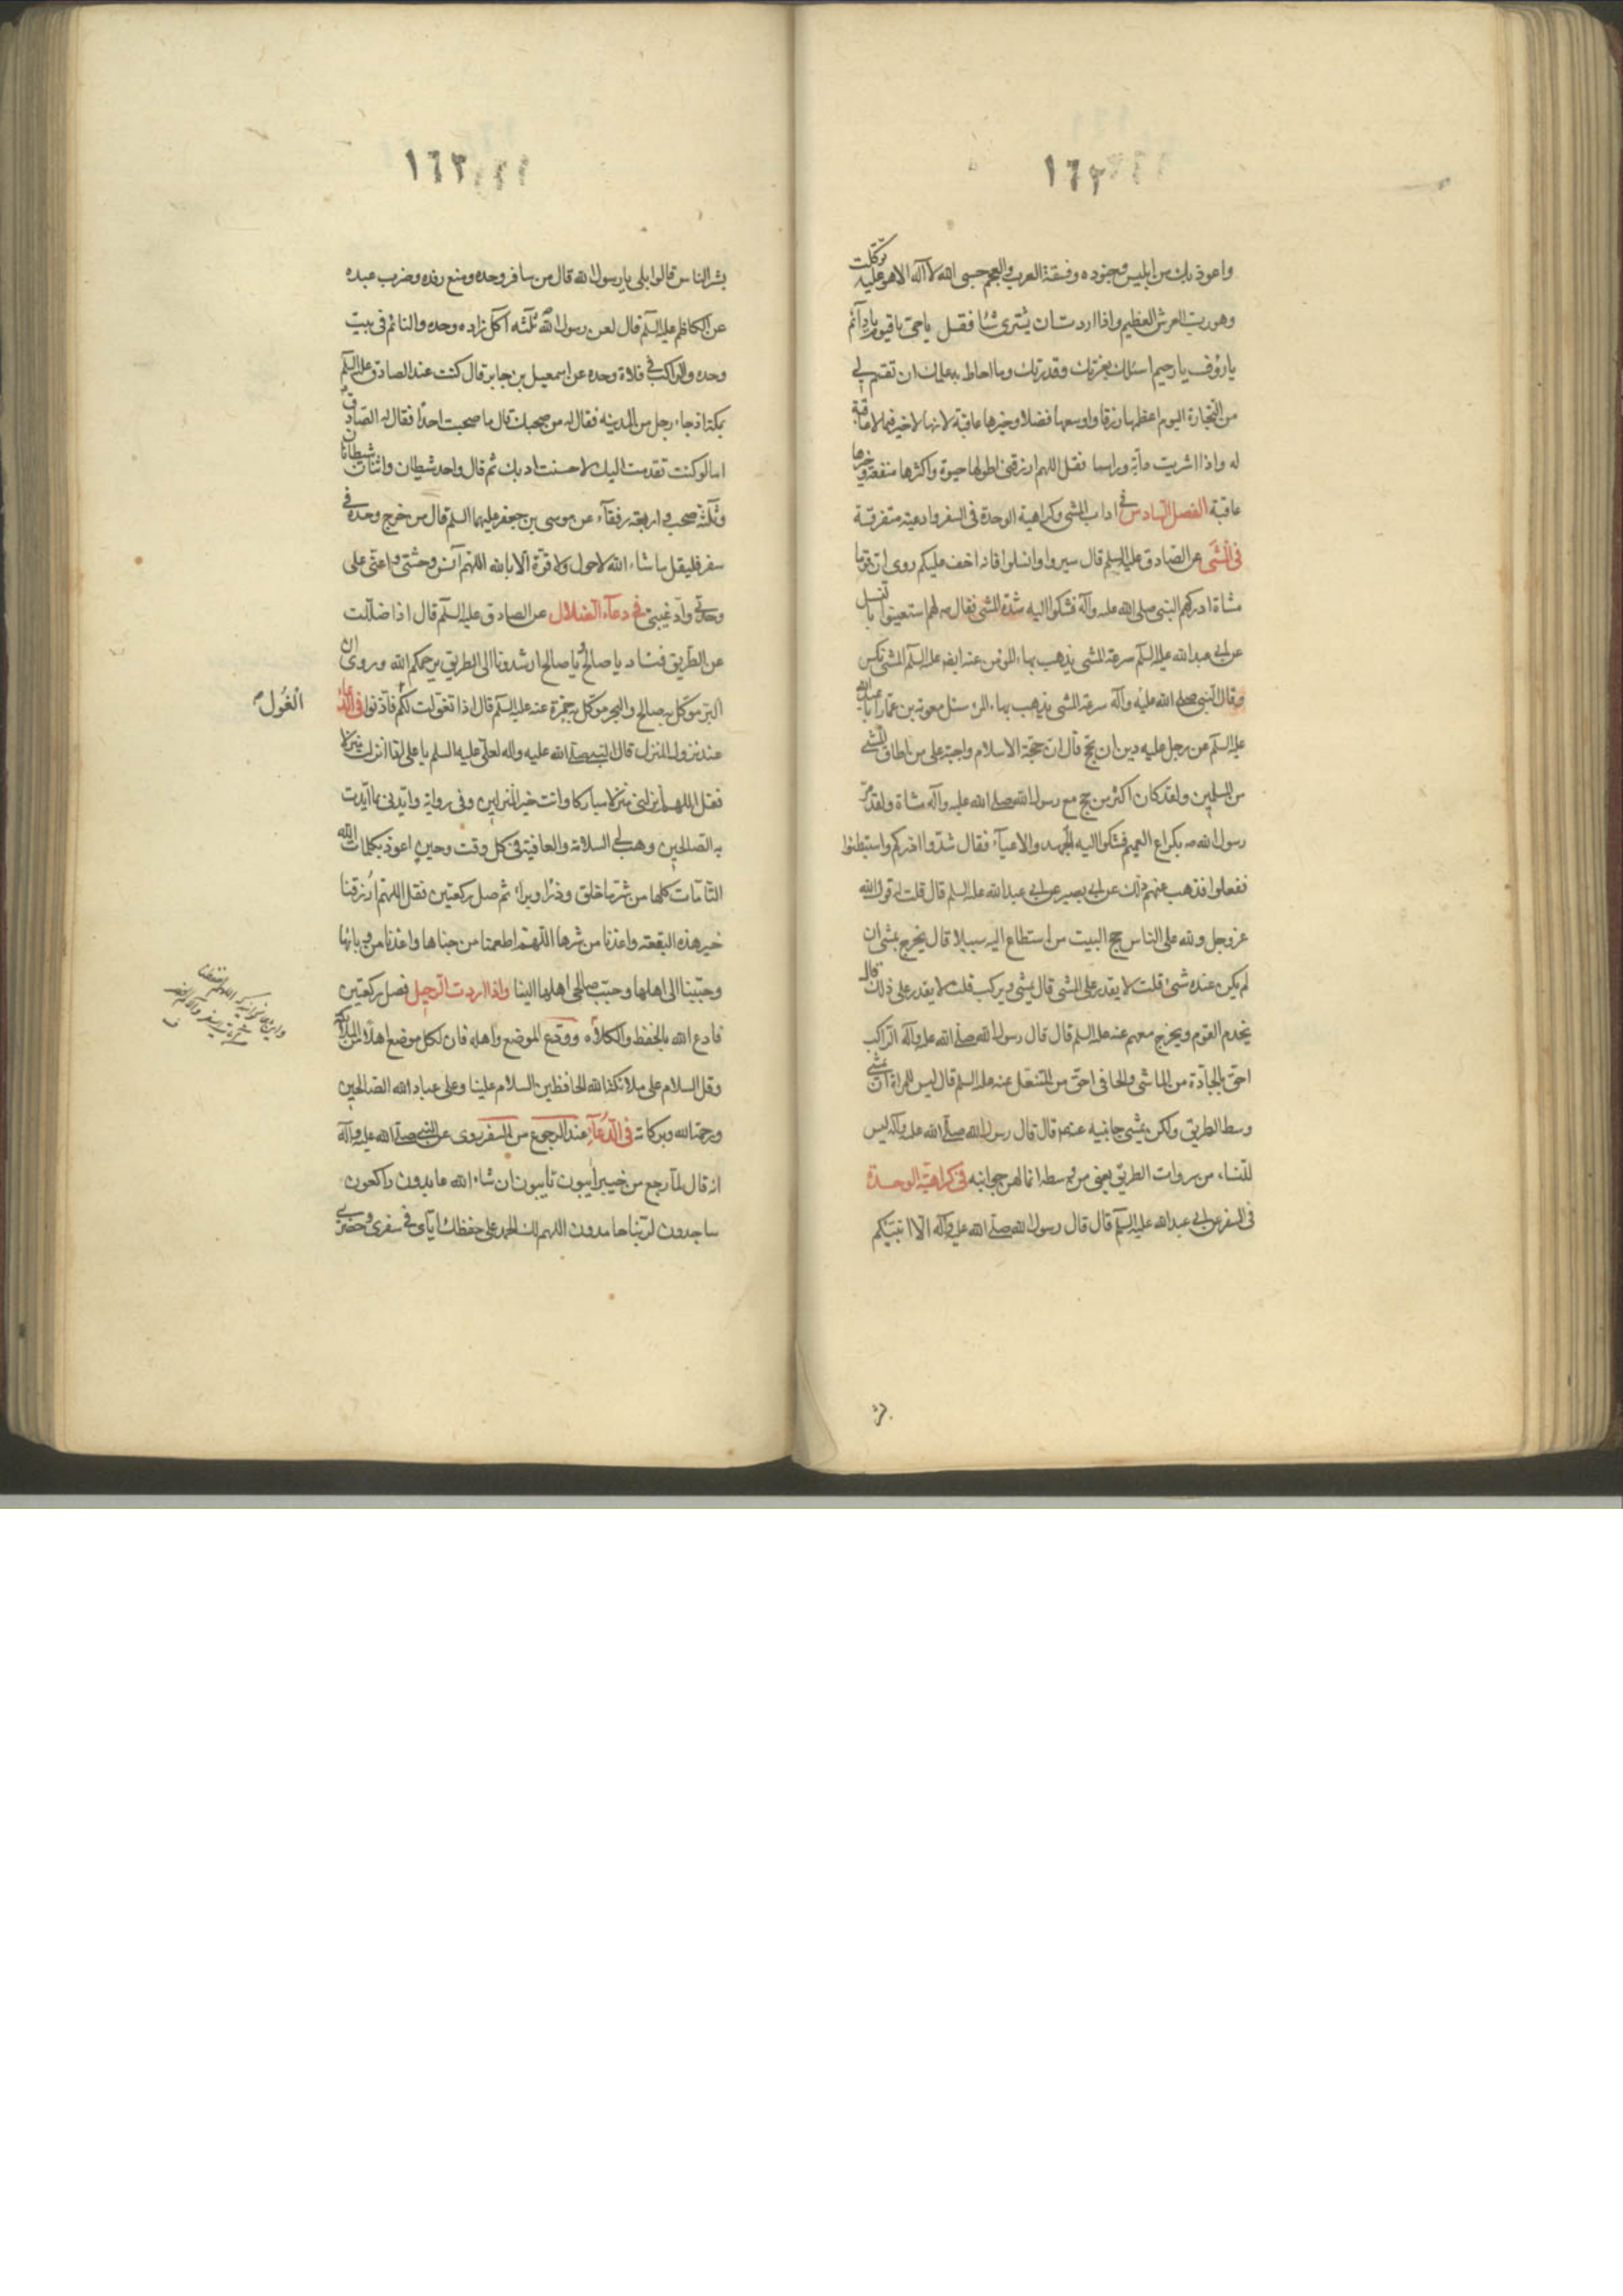 ١٦٢
واعوذ بك من ابليس وجنوده وفسقة العرب والعجم حسبى الله لا آله الا هو عليه توكلت
وهو رب العرش العظيم واذا اردت ان يشترى شيئا فقل يا حى يا قيوم يا دآئم
يا رؤف يا رحيم اسئلك بعزتك وقدرتك وما احاط به علمك ان تقسم لى
من التجارة اليوم اعظمها رزقا واوسعها فضلا وخيرها عاقبة لانه لا خير فيما لا عاقبة
له واذا اشتريت دآبة وراسا فقل اللهم ارزقنى اطولها حيوة واكثرها منفعة وخيرها
عاقبة الفصل السادس فى اداب المشى وكراهية الوحدة فى السفر وادعية متفرقة
فى المشى عن الصادق عليه السلم قال سيروا وانسلوا فانه اخف عليكم روى ان قوما
مشاة ادركهم النبى صلى الله عليه وآله فشكوا اليه شدة المشى فقال لهم استعينوا بالنسل
عن ابى عبد الله عليه السلم سرعة المشى يذهب بهاء المؤمن عنه ايضا عليه السلم المشى نكس
وقال النبى صلى الله عليه وآله سرعة المشى يذهب بهاء المؤمن سئل معوية بن عمار ابا عبد الله
عليه السلم عن رجل عليه دين ان يحج قال ان حجة الاسلام واجبة على من اطاق المشى
من المسلمين ولقد كان اكثر من حج مع رسول الله صلى الله عليه وآله مشاة ولقد مر
رسول الله ص بكراع الغميم فشكوا اليه الجهد والاعيآء فقال شدوا ازركم واستبطنوا
ففعلوا فذهب عنهم ذلك عن ابى بصير عن ابى عبد الله عليه السلم قال قلت له قول الله
عز وجل ولله على الناس حج البيت من استطاع اليه سبيلا قال يخرج يمشى ان
لم يكن عنده شئ قلت لا يقدر على المشى قال يمشى ويركب قلت لا يقدر على ذلك قال
يخدم القوم ويخرج معهم عنه عليه السلم قال قال رسول الله صلى الله عليه وآله الراكب
احق بالجادة من الماشى والحافى احق من المتنعل عنه عليه السلم قال ليس للمراة ان تمشى
وسط الطريق ولكن يمشى جانبيه عنه قال قال رسول الله صلى الله عليه وآله ليس
للنساء من سروات الطريق يعنى من وسطه انما لهن جوانبه فى كراهية الوحدة
فى السفر عن ابى عبد الله عليه السلم قال قال رسول الله صلى الله عليه وآله الا انبئكم
بشر
١٦٣
بشر الناس قالوا بلى يا رسول الله قال من سافر وحده ومنع رفده وضرب عبده
عن الكاظم عليه السلم قال لعن رسول الله ثلثه آكل زاده وحده والنائم فى بيت
وحده والراكب فى فلاة وحده عن اسمعيل بن جابر قال كنت عند الصادق عليه السلم
بمكة اذ جاء رجل من المدينه فقال له من صحبك قال ما صحبت احدا فقال له الصادق
اما لو كنت تقدمت اليك لاحسنت ادبك ثم قال واحد شيطان واثنان شيطانان
وثلثة صحب واربعة رفقآء عن موسى بن جعفر عليهما السلم قال من خرج وحده فى
سفر فليقل ما شاء الله لا حول ولا قوة الا بالله اللهم آنس وحشتى واعنى على
وحدتى وادّ غيبتى فى دعآء الضلال عن الصادق عليه السلم قال اذا ضللت
عن الطريق فناد يا صالح ويا صالحا ارشدونا الى الطريق يرحمكم الله وروى ان
البر موكل به صالح والبحر موكل به حمزة عنه عليه السلم قال اذا تغولت لكم فآذنوا فى الدعاء
الغُول
عند نزول المنزل قال النبى صلى الله عليه وآله لعلى عليه السلم يا على اذا نزلت منزلا
فقل اللهم انزلنى منزلا مباركا وانت خير المنزلين وفى رواية وايدنى بما ايدت
به الصالحين وهب لى السلامة والعافية فى كل وقت وحين اعوذ بكلمات الله
التامات كلها من شر ما خلق وذرا وبرا ثم صل ركعتين فقل اللهم ارزقنا
خير هذه البقعة واعذنا من شرها اللهم اطعمنا من جناها واعذنا من وبائها
وحببنا الى اهلها وحبب صالحى اهلها الينا واذا اردت الرحيل فصل ركعتين
فادع الله بالحفظ والكلأه وودع الموضع واهله فان لكل موضع اهلا من الملائكة
وقل السلام على ملائكة الله الحافظين السلام علينا وعلى عباد الله الصالحين
ورحمة الله وبركاته فى الدعآء عند الرجوع من السفر روى عن النبى صلى الله عليه وآله
انه قال لما رجع من خيبر آيبون تايبون ان شاء الله عابدون راكعون
ساجدون لربنا حامدون اللهم لك الحمد على حفظك اياى فى سفرى وحضرى